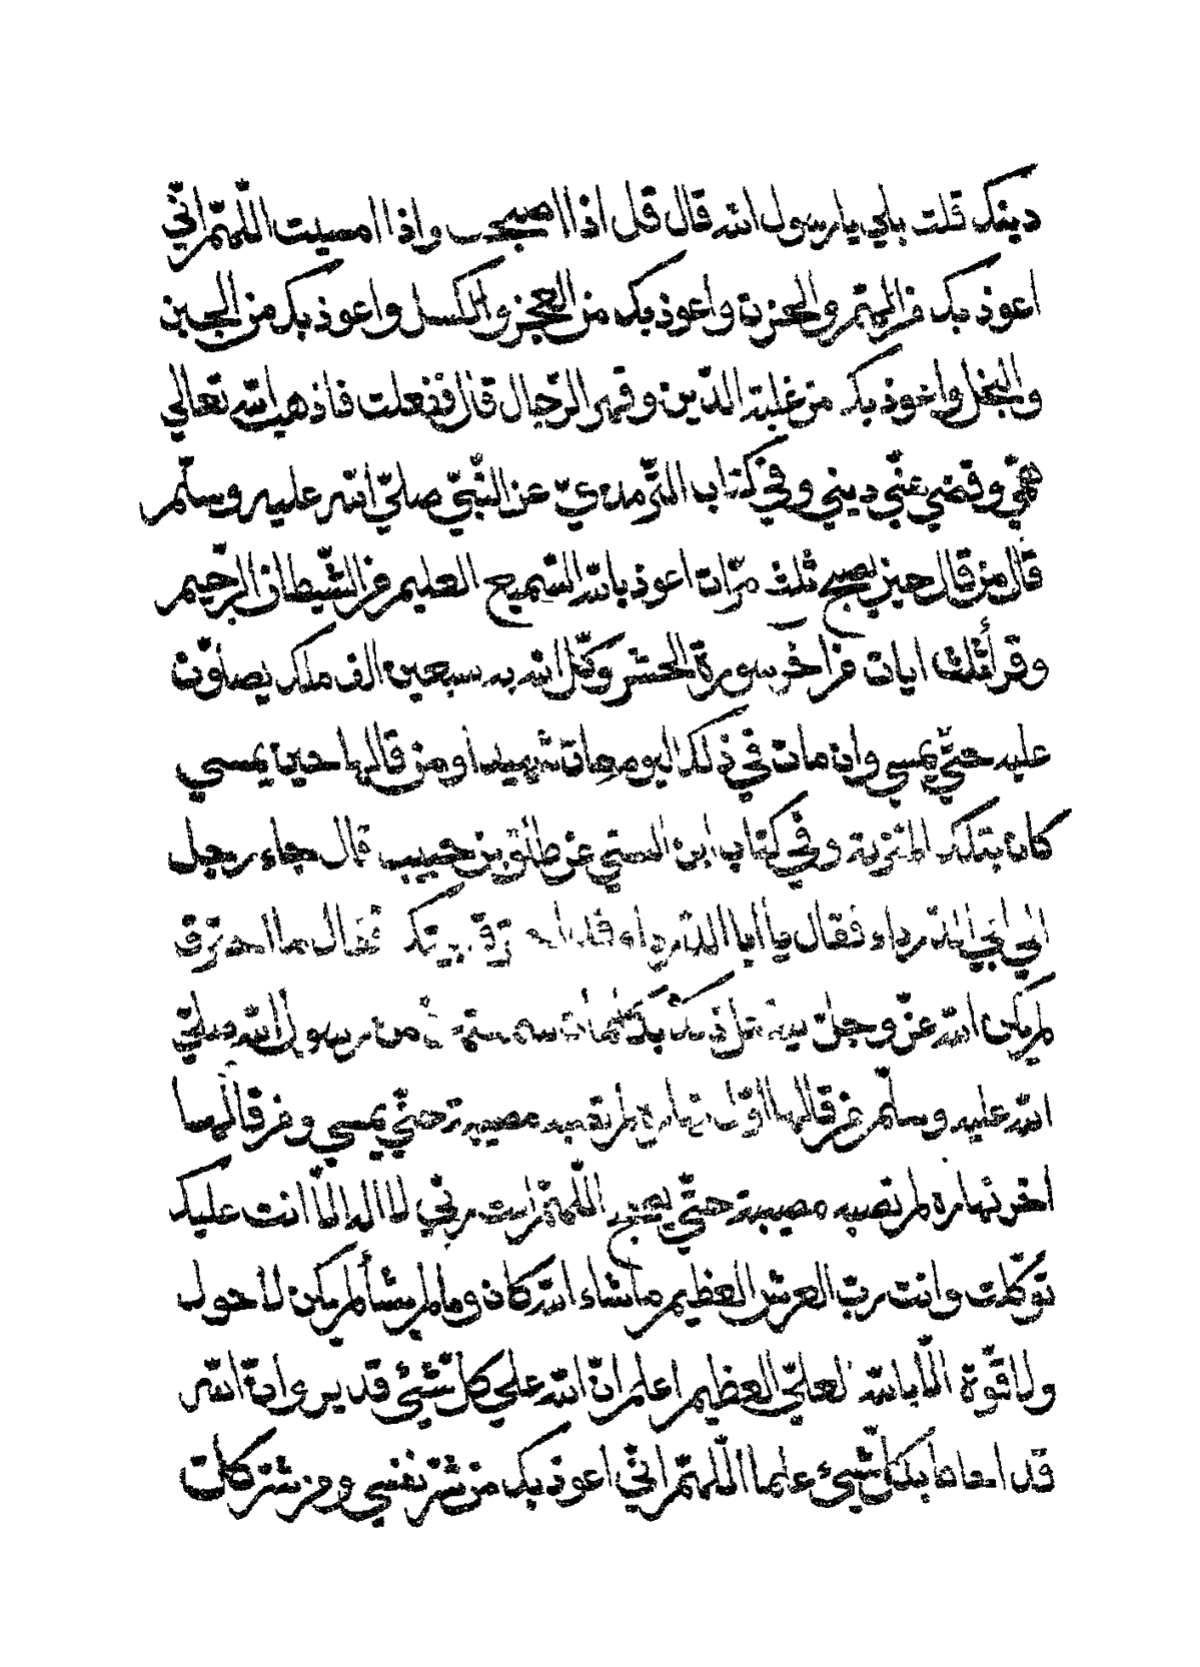 دينك قلت بلي يا رسول الله قال قل اذا اصبحت واذا امسيت اللّهمّ انّي
اعوذ بك من الهمّ والحزن واعوذ بك من العجز والكسل واعوذ بك من الجبن
والبخل واعوذ بك من غلبة الدّين وقهر الرّجال قال ففعلت فاذهب الله تعالي
همّي وقضي عنّي ديني وفي كتاب التّرمذيّ عن النّبيّ صليّ الله عليه وسلّم
قال من قال حين يصبح ثلث مرّات اعوذ بالله السّميع العليم من الشّيطان الرّجيم
وقرأ ثلث ايات من اخر سورة الحشر وكّل الله به سبعين الف ملك يصلّون
عليه حتّي يمسي وان مات في ذلك اليوم مات شهيدا ومن قالها حين يمسي
كان بتلك المنزلة وفي كتاب ابن السني عن طلق بن حبيب قال جاء رجل
الي ابي الدّرداء فقال يا ابا الدّرداء قد احترق بيتك فقال ما احترق
لم يكن الله عزّ وجلّ ليفعل ذلك بكلمات سمعتهنّ من رسول الله صليّ
الله عليه وسلّم من قالها اوّل نهاره لم تصبه مصيبة حتّي يمسي ومن قالها
اخر نهاره لم تصبه مصيبة حتّي يصبح اللّهمّ انت ربّي لا اله الّا انت عليك
توكّلت وانت ربّ العرش العظيم ما شاء الله كان وما لم يشأ لم يكن لا حول
ولا قوّة الّا بالله العليّ العظيم اعلم انّ الله علي كلّ شيئ قدير وانّ الله
قد احاط بكلّ شيئ علما اللّهمّ انّي اعوذ بك من شرّ نفسي ومن شرّ كلّ